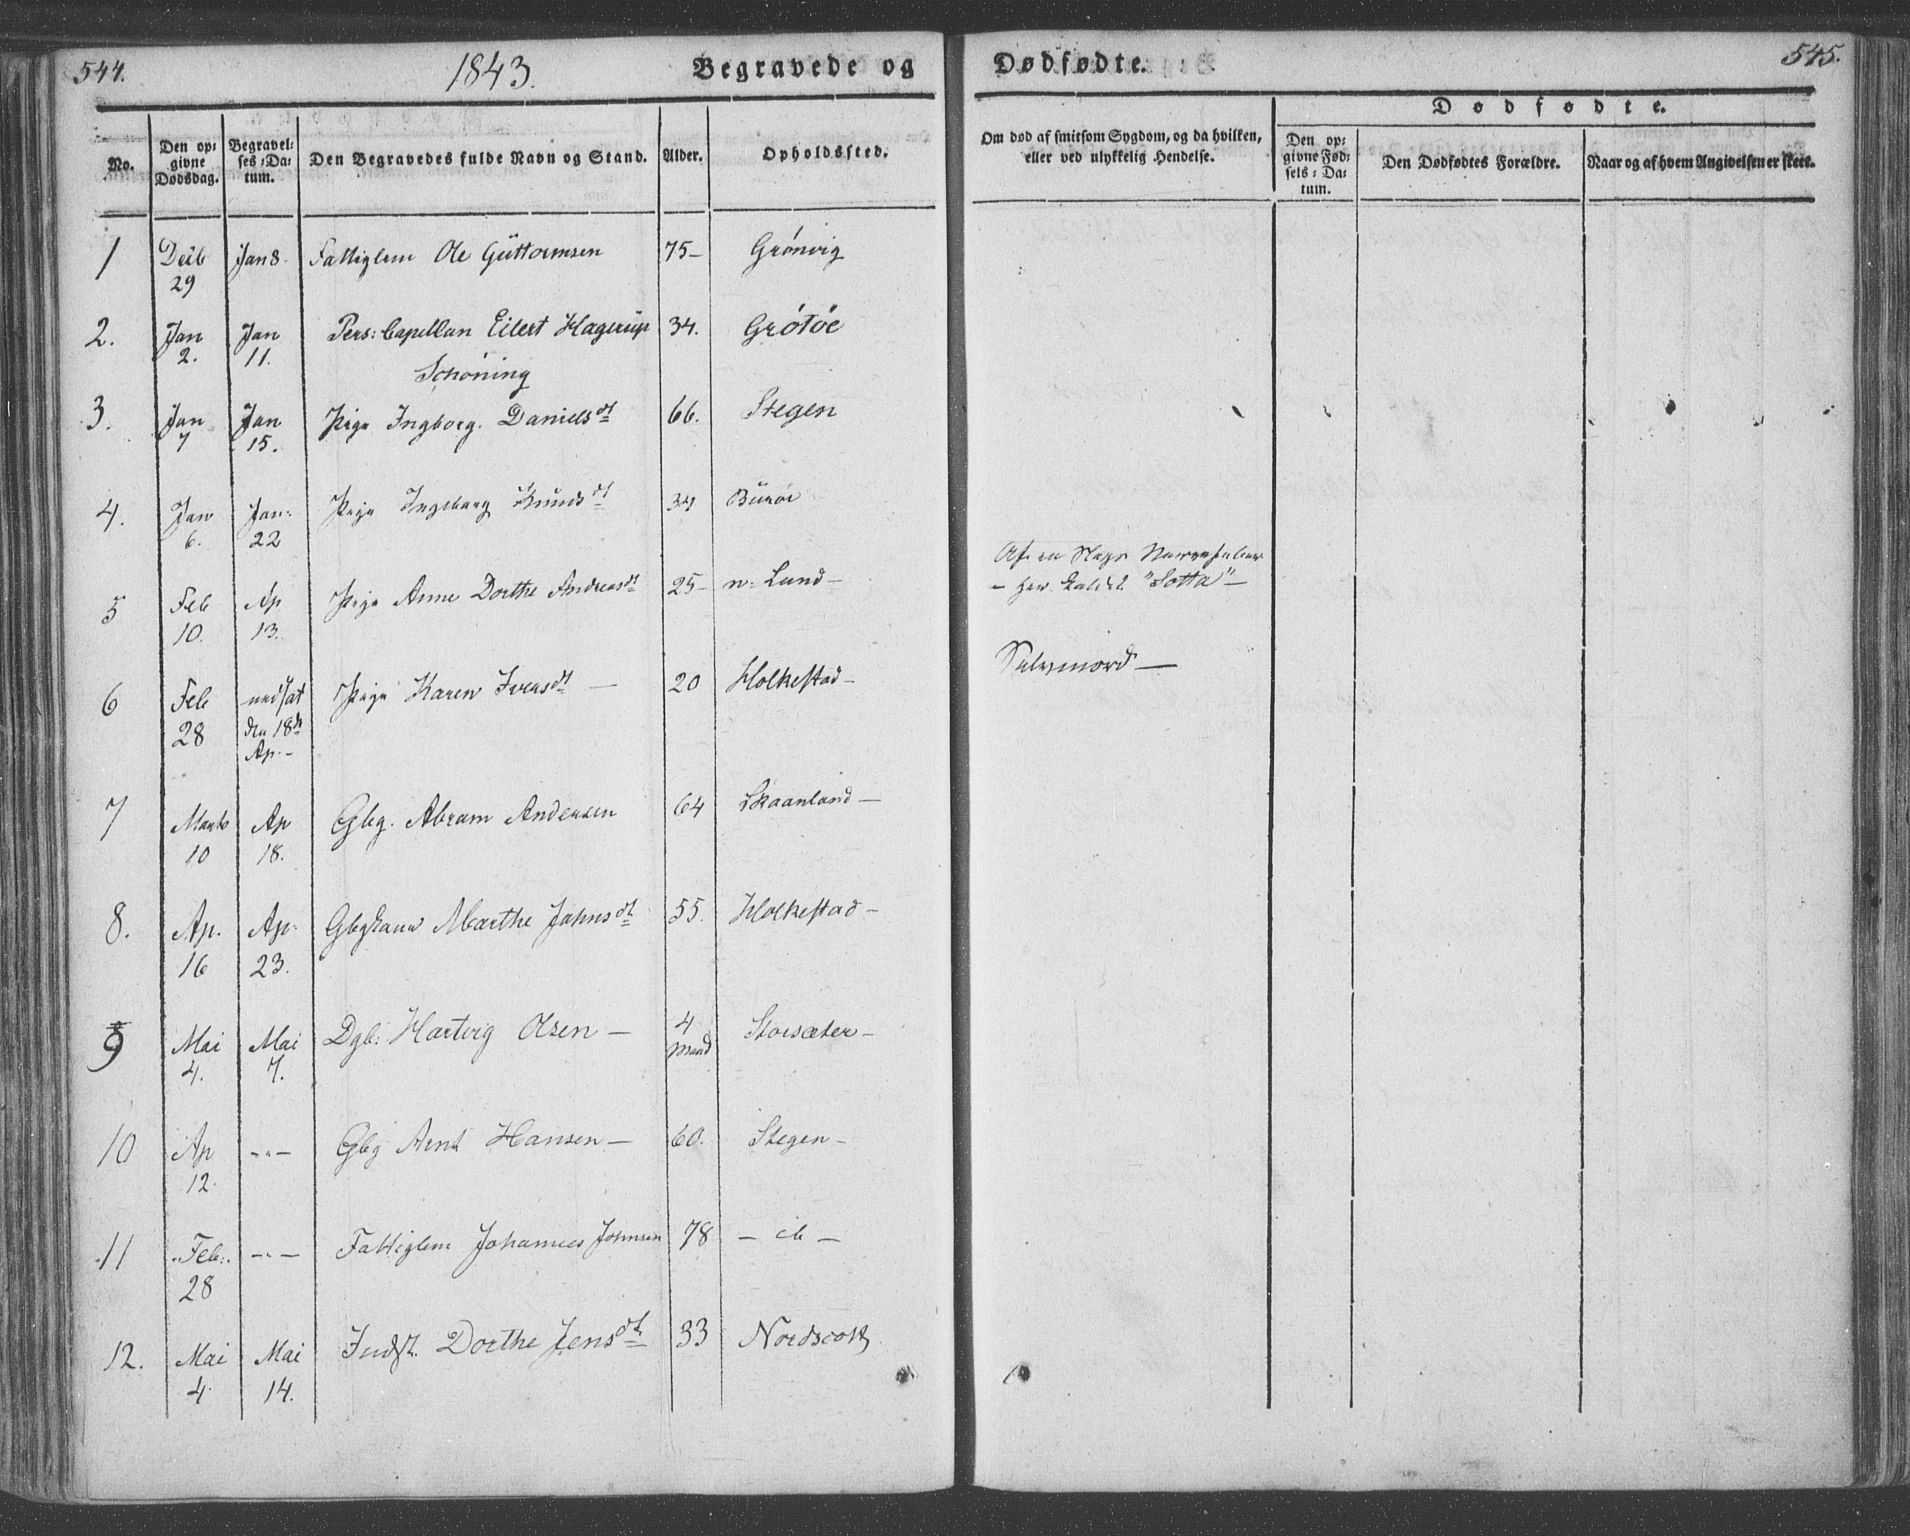 544.
1843.
Begravede og
Dødfødte.
545.
No.
Den opgivne Dødsdag.
Begravelses-Datum.
Den Begravedes fulde Navn og Stand.
Alder.
Opholdssted.
Om død af smitsom Sygdom, og da hvilken, eller ved ulykkelig Hendelse.
Dødfødte.
Den opgivne Fødsels-Datum.
Den Dødfødtes Forældre.
Naar og af hvem Angivelsen er skeet.
1 Decb 29 Jan 8. Fattiglem Ole Guttormsen 75- Grönvig
2. Jan 2. Jan 11. Pers: Capellan Eilert Hagerup 34. Grötöe
Schöning
3. Jan 7 Jan 15. Pige Ingborg. Daniels dt 66. Stegen
4. Jan 6. Jan: 22 Pige Ingeborg Knuds dt 34
5 Feb 10. Ap 13. Pige Anne Dorthe Andreas dt 25- n: Lund-
Af en Slags Nervefeber
- her kaldet "Sotta"-
6 Feb 28 nedsat den 18de Ap.- Pige Karen Ivers dt - 20 Holkestad-
Selvmord-
7 Marts 10 Ap 18. Gbg. Abram Andersen 64 Skaanland-
8. Ap. 16 Ap: 23. Gbgkone Marthe Johns dt 55. Holkestad-
9 Mai 4. Mai 7. Dgb: Hartvig Olsen- 4 Maand Storsæter-
10 Ap 12. -"- Gbg Arnt Hansen- 60. Stegen-
11 Feb: 28 -"- Fattiglem Johannes Johnsen 78 - ib -
12. Mai 4 Mai 14. Indst. Dorthe Jens dt 33